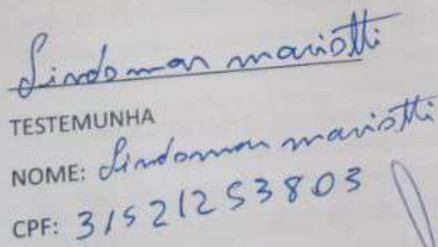 Lindomar mariotti
TESTEMUNHA
NOME: Lindomar mariotti
CPF: 31521253803